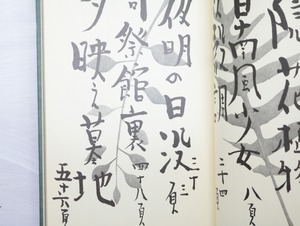 花植物
南風少女 八頁
三十四
夜明の日没 三十三頁
司祭館裏 四十八頁
夕映え墓地 五十六頁